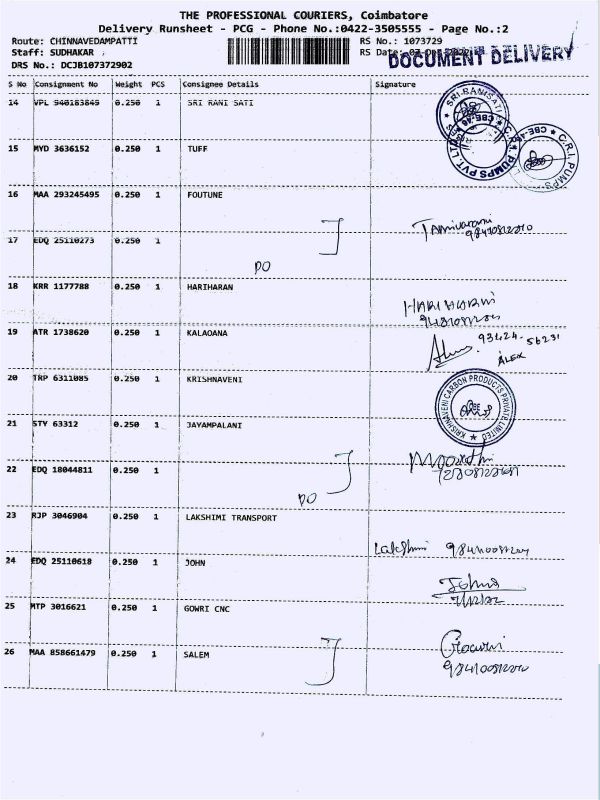 THE PROFESSIONAL COURIERS, Coimbatore
Delivery Runsheet - PCG - Phone No.:0422-3505555 - Page No.:2
Route: CHINNAVEDAMPATTI RS No.: 1073729
Staff: SUDHAKAR RS Date:
DOCUMENT DELIVERY
DRS No.: DCJB107372902
S No Consignment No Weight PCS Consignee Details Signature
14 VPL 940183849 0.250 1 SRI RANI SATI
15 MYD 3636152 0.250 1 TUFF
16 MAA 293245495 0.250 1 FOUTUNE
17 EDQ 25110273 0.250 1
DO
18 KRR 1177788 0.250 1 HARIHARAN
19 ATR 1738620 0.250 1 KALAOANA
93424-56231
ALEX
20 TRP 6311085 0.250 1 KRISHNAVENI
KRISHNAVENI CARBON PRODUCTS PRIVATE LIMITED
21 STY 63312 0.250 1 JAYAMPALANI
22 EDQ 18044811 0.250 1
DO
23 RJP 3046904 0.250 1 LAKSHIMI TRANSPORT
Lakshmi
24 EDQ 25110618 0.250 1 JOHN
25 MTP 3016621 0.250 1 GOWRI CNC
26 MAA 858661479 0.250 1 SALEM